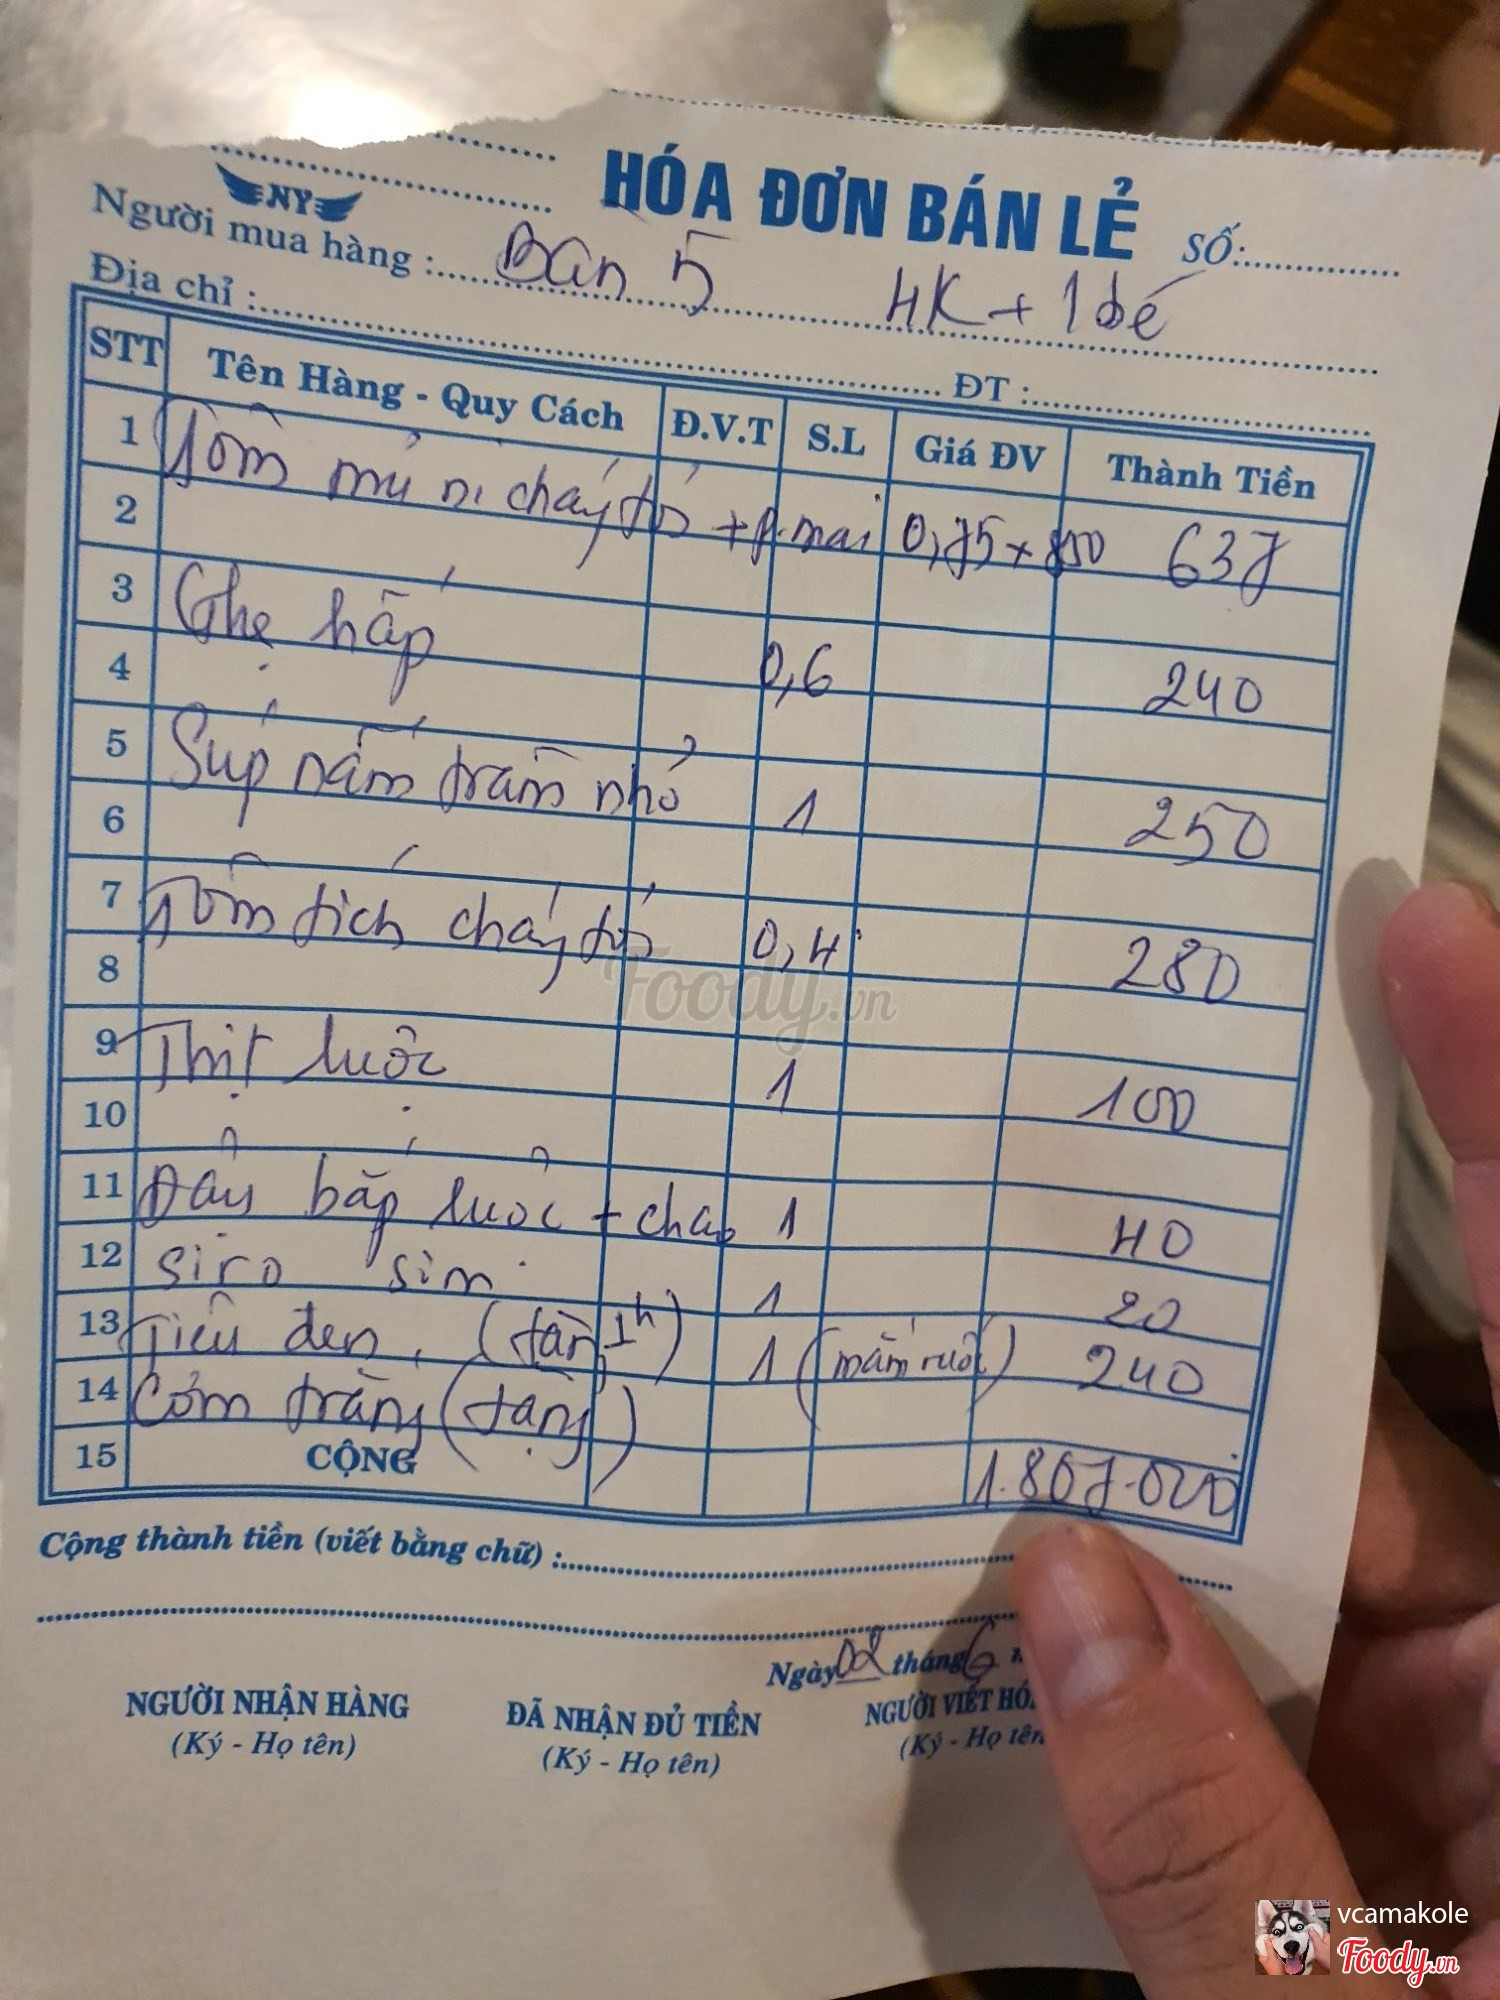 HÓA ĐƠN BÁN LẺ
SỐ:
NY
Người mua hàng : Bàn 5 4K + 1 bé
Địa chỉ : ĐT :
STT Tên Hàng - Quy Cách Đ.V.T S.L Giá ĐV Thành Tiền
1 Tôm mủ ni cháy tỏi + p.mai 0,75 x 850 637
2
3 Ghẹ hấp 0,6 240
4
5 Súp nấm tràm nhỏ 1 250
6
7 Tôm tích cháy tỏi 0,4 280
8
9 Thịt luộc 1 100
10
11 Đậu bắp luộc + chao 1 40
12 Siro sim 1 20
13 Tiêu đen (mắm ruốc) 1 240
14 Cơm trắng (tặng)
15 CỘNG 1.807.000
Cộng thành tiền (viết bằng chữ) :
Ngày 02 tháng 6
NGƯỜI NHẬN HÀNG ĐÃ NHẬN ĐỦ TIỀN NGƯỜI VIẾT HÓ
(Ký - Họ tên) (Ký - Họ tên) (Ký - Họ tên
Foody.vn
vcamakole
Foody.vn